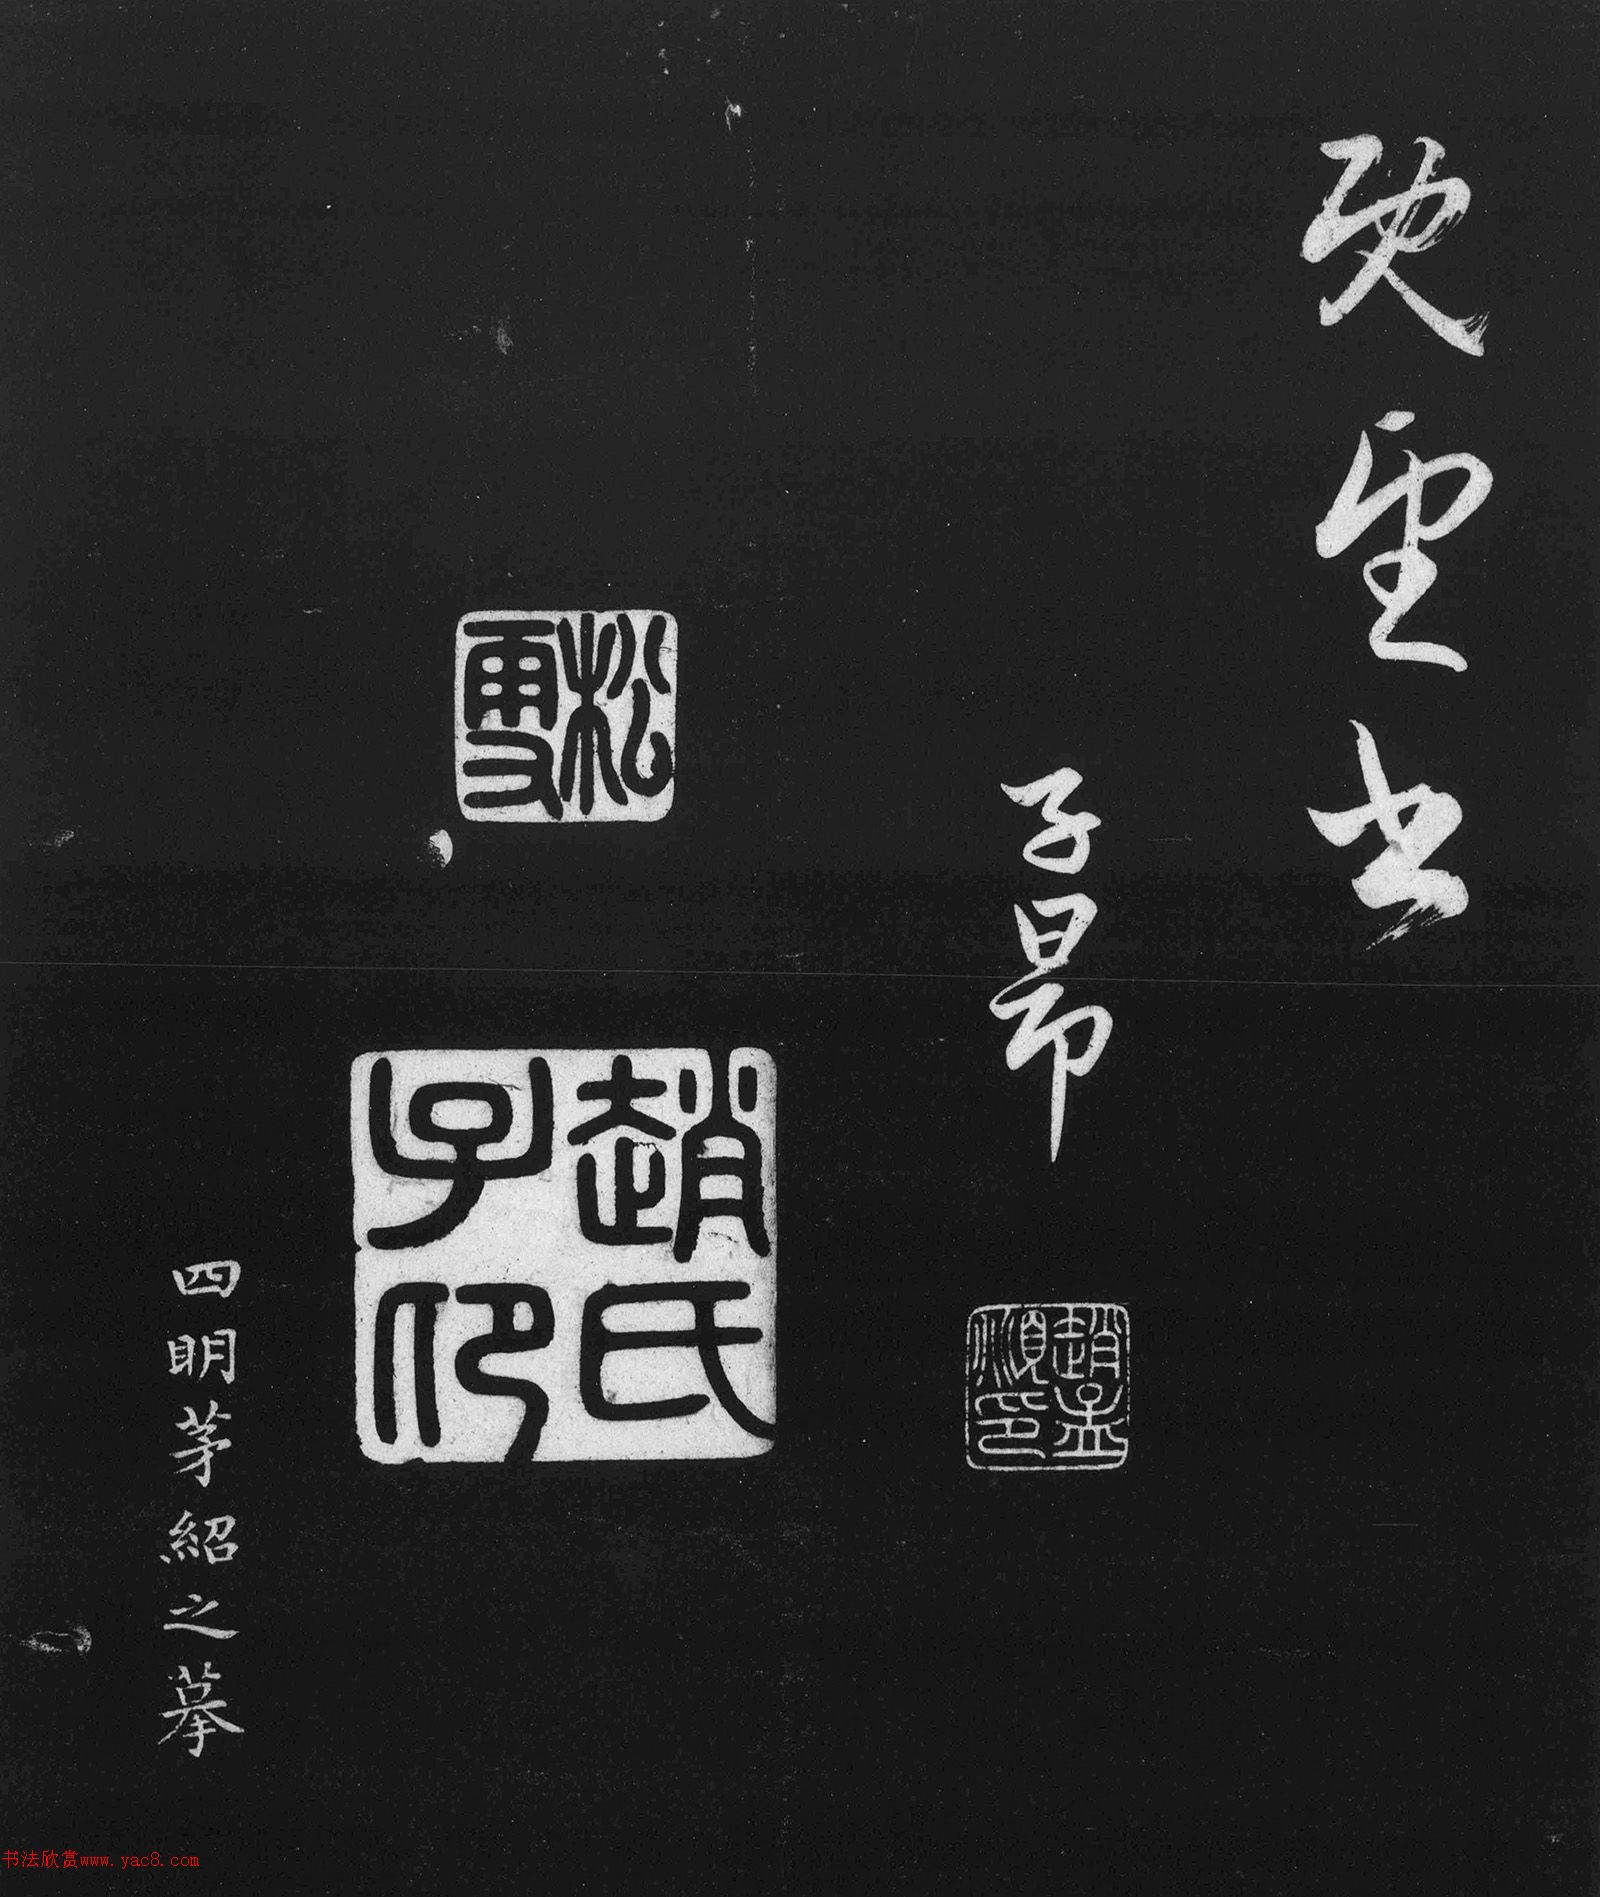 既望書
子昂
趙孟
頫印
松雪
趙氏
子昂
四明茅紹之摹
书法欣赏www.yac8.com